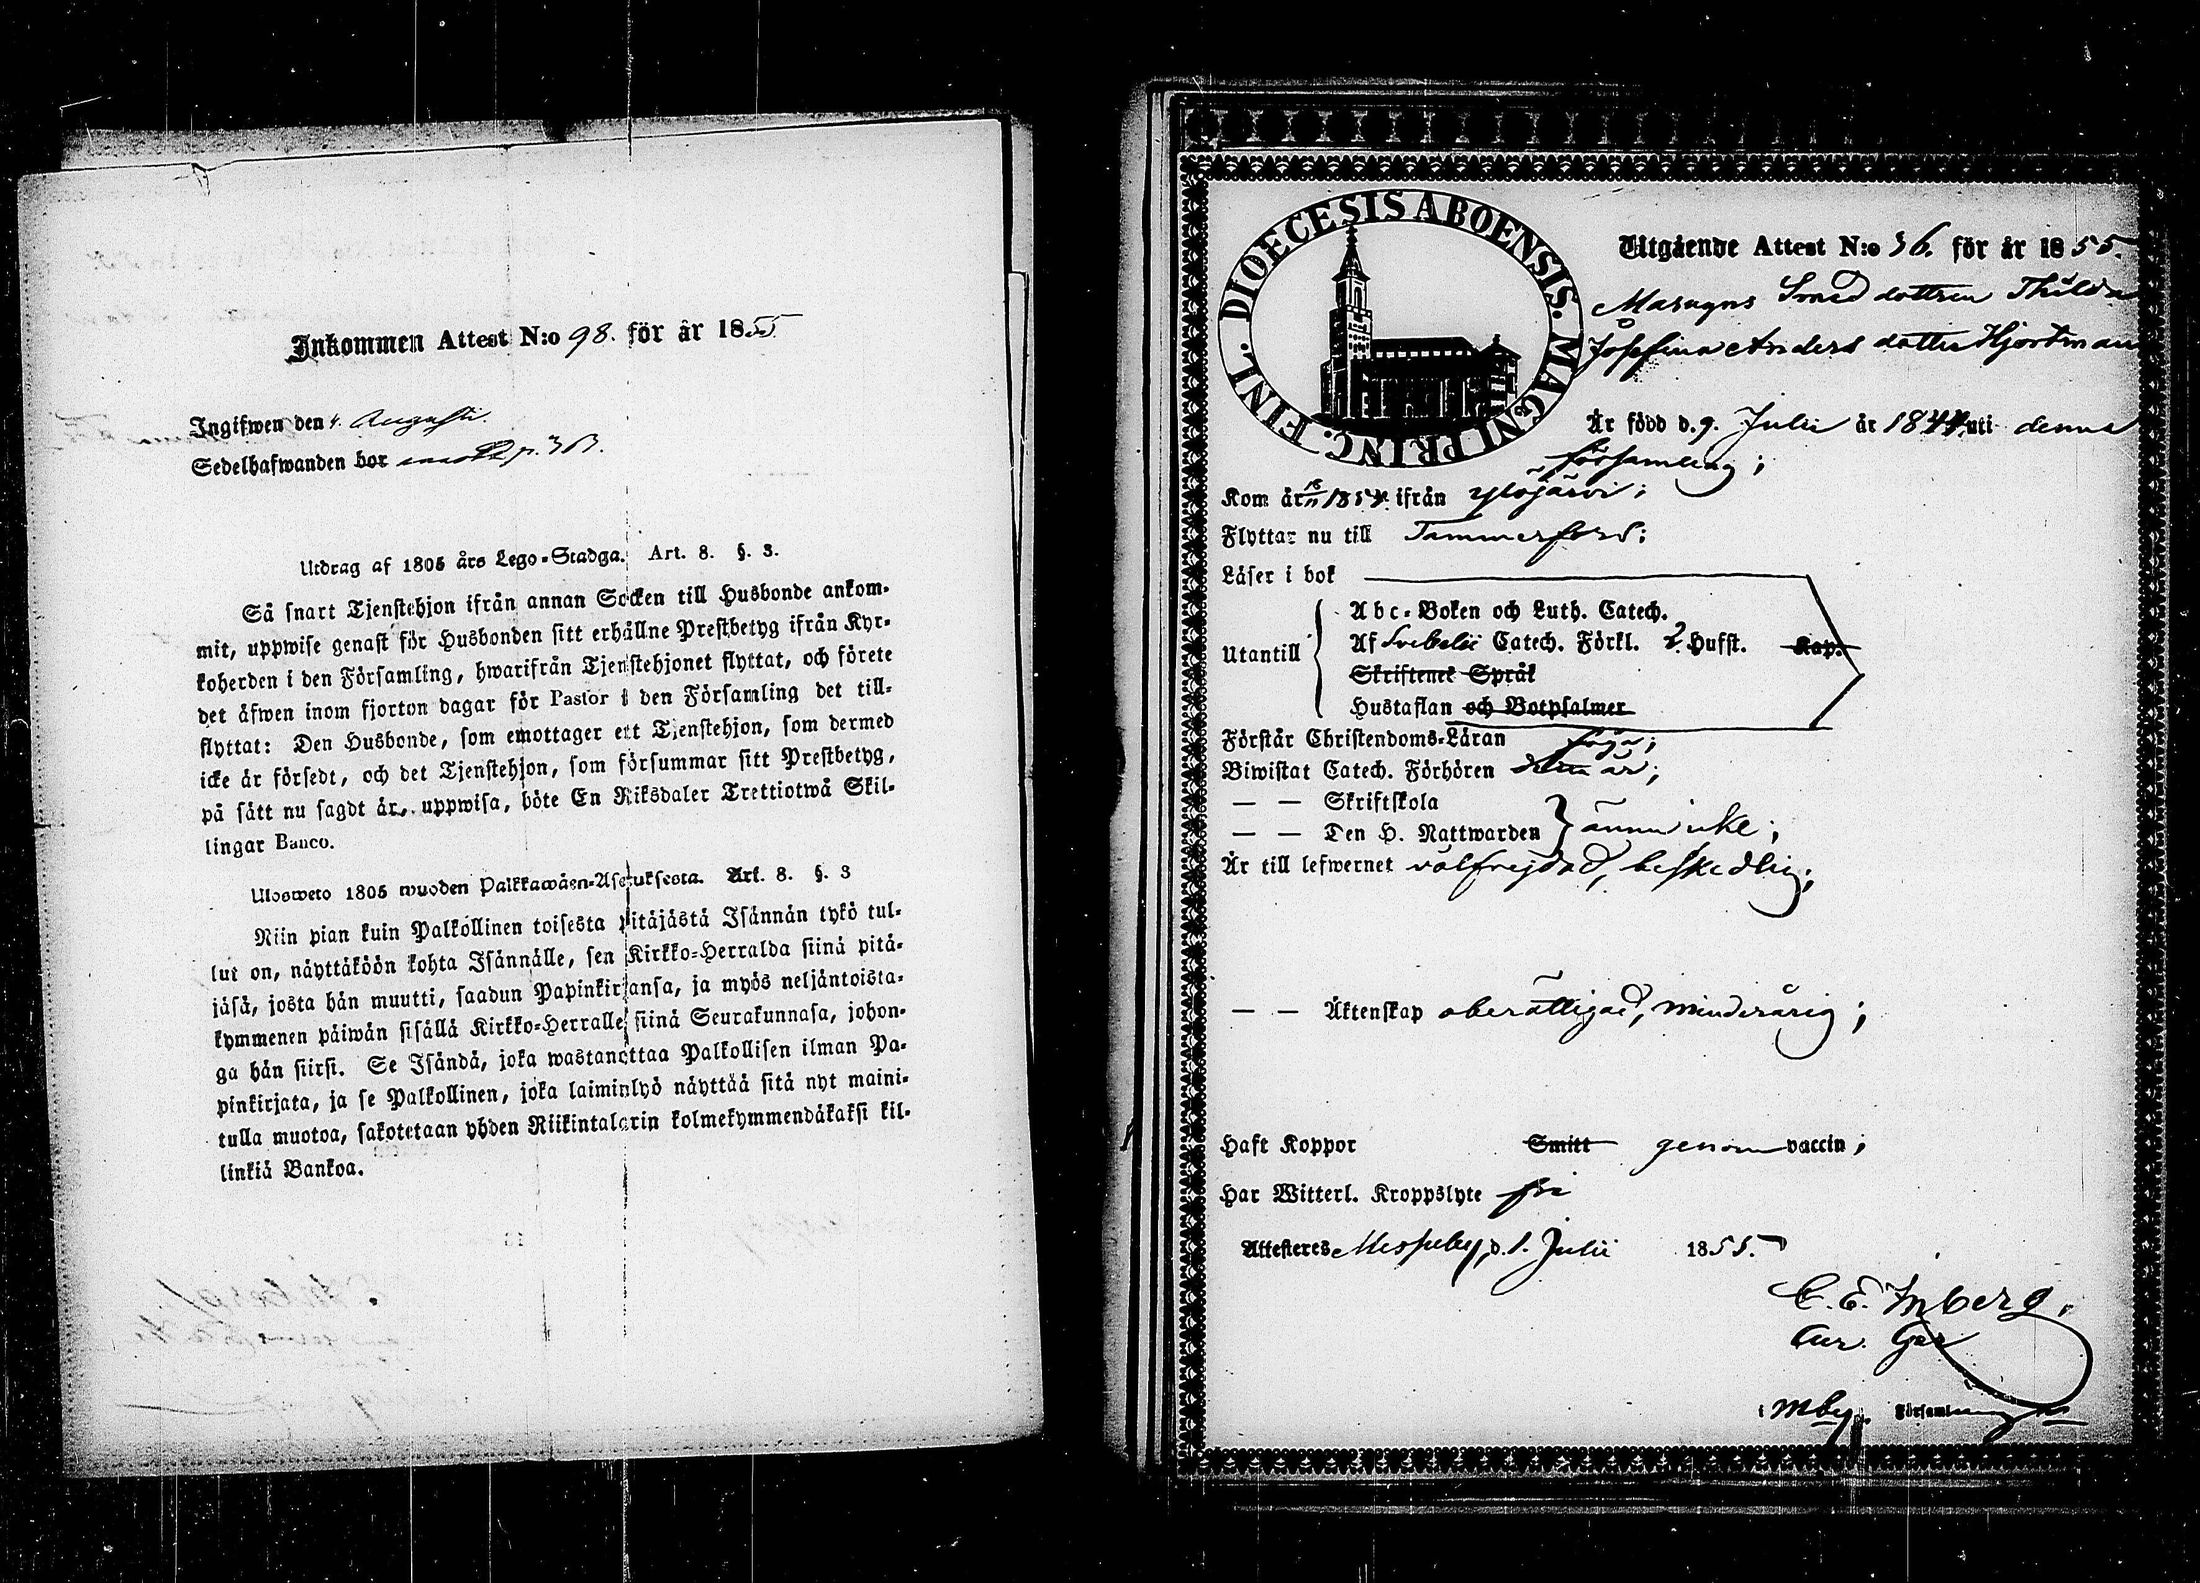 Inkommen Attest N:o 98. för år 1855
Ingifwen den 4. Augusti.
Sedelhafwanden bor p. 363.
Utdrag af 1805 års Lego-Stadga. Art. 8. §. 3.
Så snart Tjenstehjon ifrån annan Socken till Husbonde ankom-
mit, uppwise genast för Husbonden sitt erhållne Prestbetyg ifrån Kyr-
koherden i den Församling, hwarifrån Tjenstehjonet flyttat, och förete
det äfwen inom fjorton dagar för Pastor i den Församling det till-
flyttat: Den Husbonde, som emottager ett Tjenstehjon, som dermed
icke är försedt, och det Tjenstehjon, som försummar sitt Prestbetyg,
på sätt nu sagdt är, uppwisa, böte En Riksdaler Trettiotwå Skil-
lingar Banco.
Ulosweto 1805 wuoden Palkkawäen-Asetuksesta. Art. 8. §. 3
Niin pian kuin Palkollinen toisesta pitäjästä Isännän tykö tul-
lut on, näyttäköön kohta Isännälle, sen Kirkko-Herralda siinä pitä-
jäsä, josta hän muutti, saadun Papinkirjansa, ja myös neljäntoista-
kymmenen päiwän sisällä Kirkko-Herralle siinä Seurakunnasa, johon-
ga hän siirsi. Se Isändä, joka wastanottaa Palkollisen ilman Pa-
pinkirjata, ja se Palkollinen, joka laiminlyö näyttää sitä nyt maini-
tulla muotoa, sakotetaan yhden Riikintalarin kolmekymmendäkaksi kil-
linkiä Bankoa.
DIOECESIS ABOENSIS. MAGNI PRINC. FINL.
Utgående Attest N:o 36. för år 1855.
Masugns Smed dottren Thilda
Josefina Anders dotter Hjortman
Är född d. 9. Julii år 1844. uti denna
församling;
Kom år 1854. ifrån Ylöjärvi;
Flyttar nu till Tammerfors;
Läser i bok
Utantill
Abc-Boken och Luth. Catech.
Af Svebelii Catech. Förkl. 2. Hufst. Kap.
Skriftenes Språk
Hustaflan och Botpsalmer
Förstår Christendoms-Läran föga;
Biwistat Catech. Förhören detta år;
— — Skriftskola
— — Den H. Nattwarden } ännu icke;
Är till lefwernet välfrejdad, beskedlig;
— — Äktenskap oberättigad, minderårig;
Haft Koppor Smitt genom vaccin;
Har Witterl. Kroppslyte fri
Attesteres Messuby, d. 1. Julii 1855.
C. E. Inberg,
i Mby. Församling